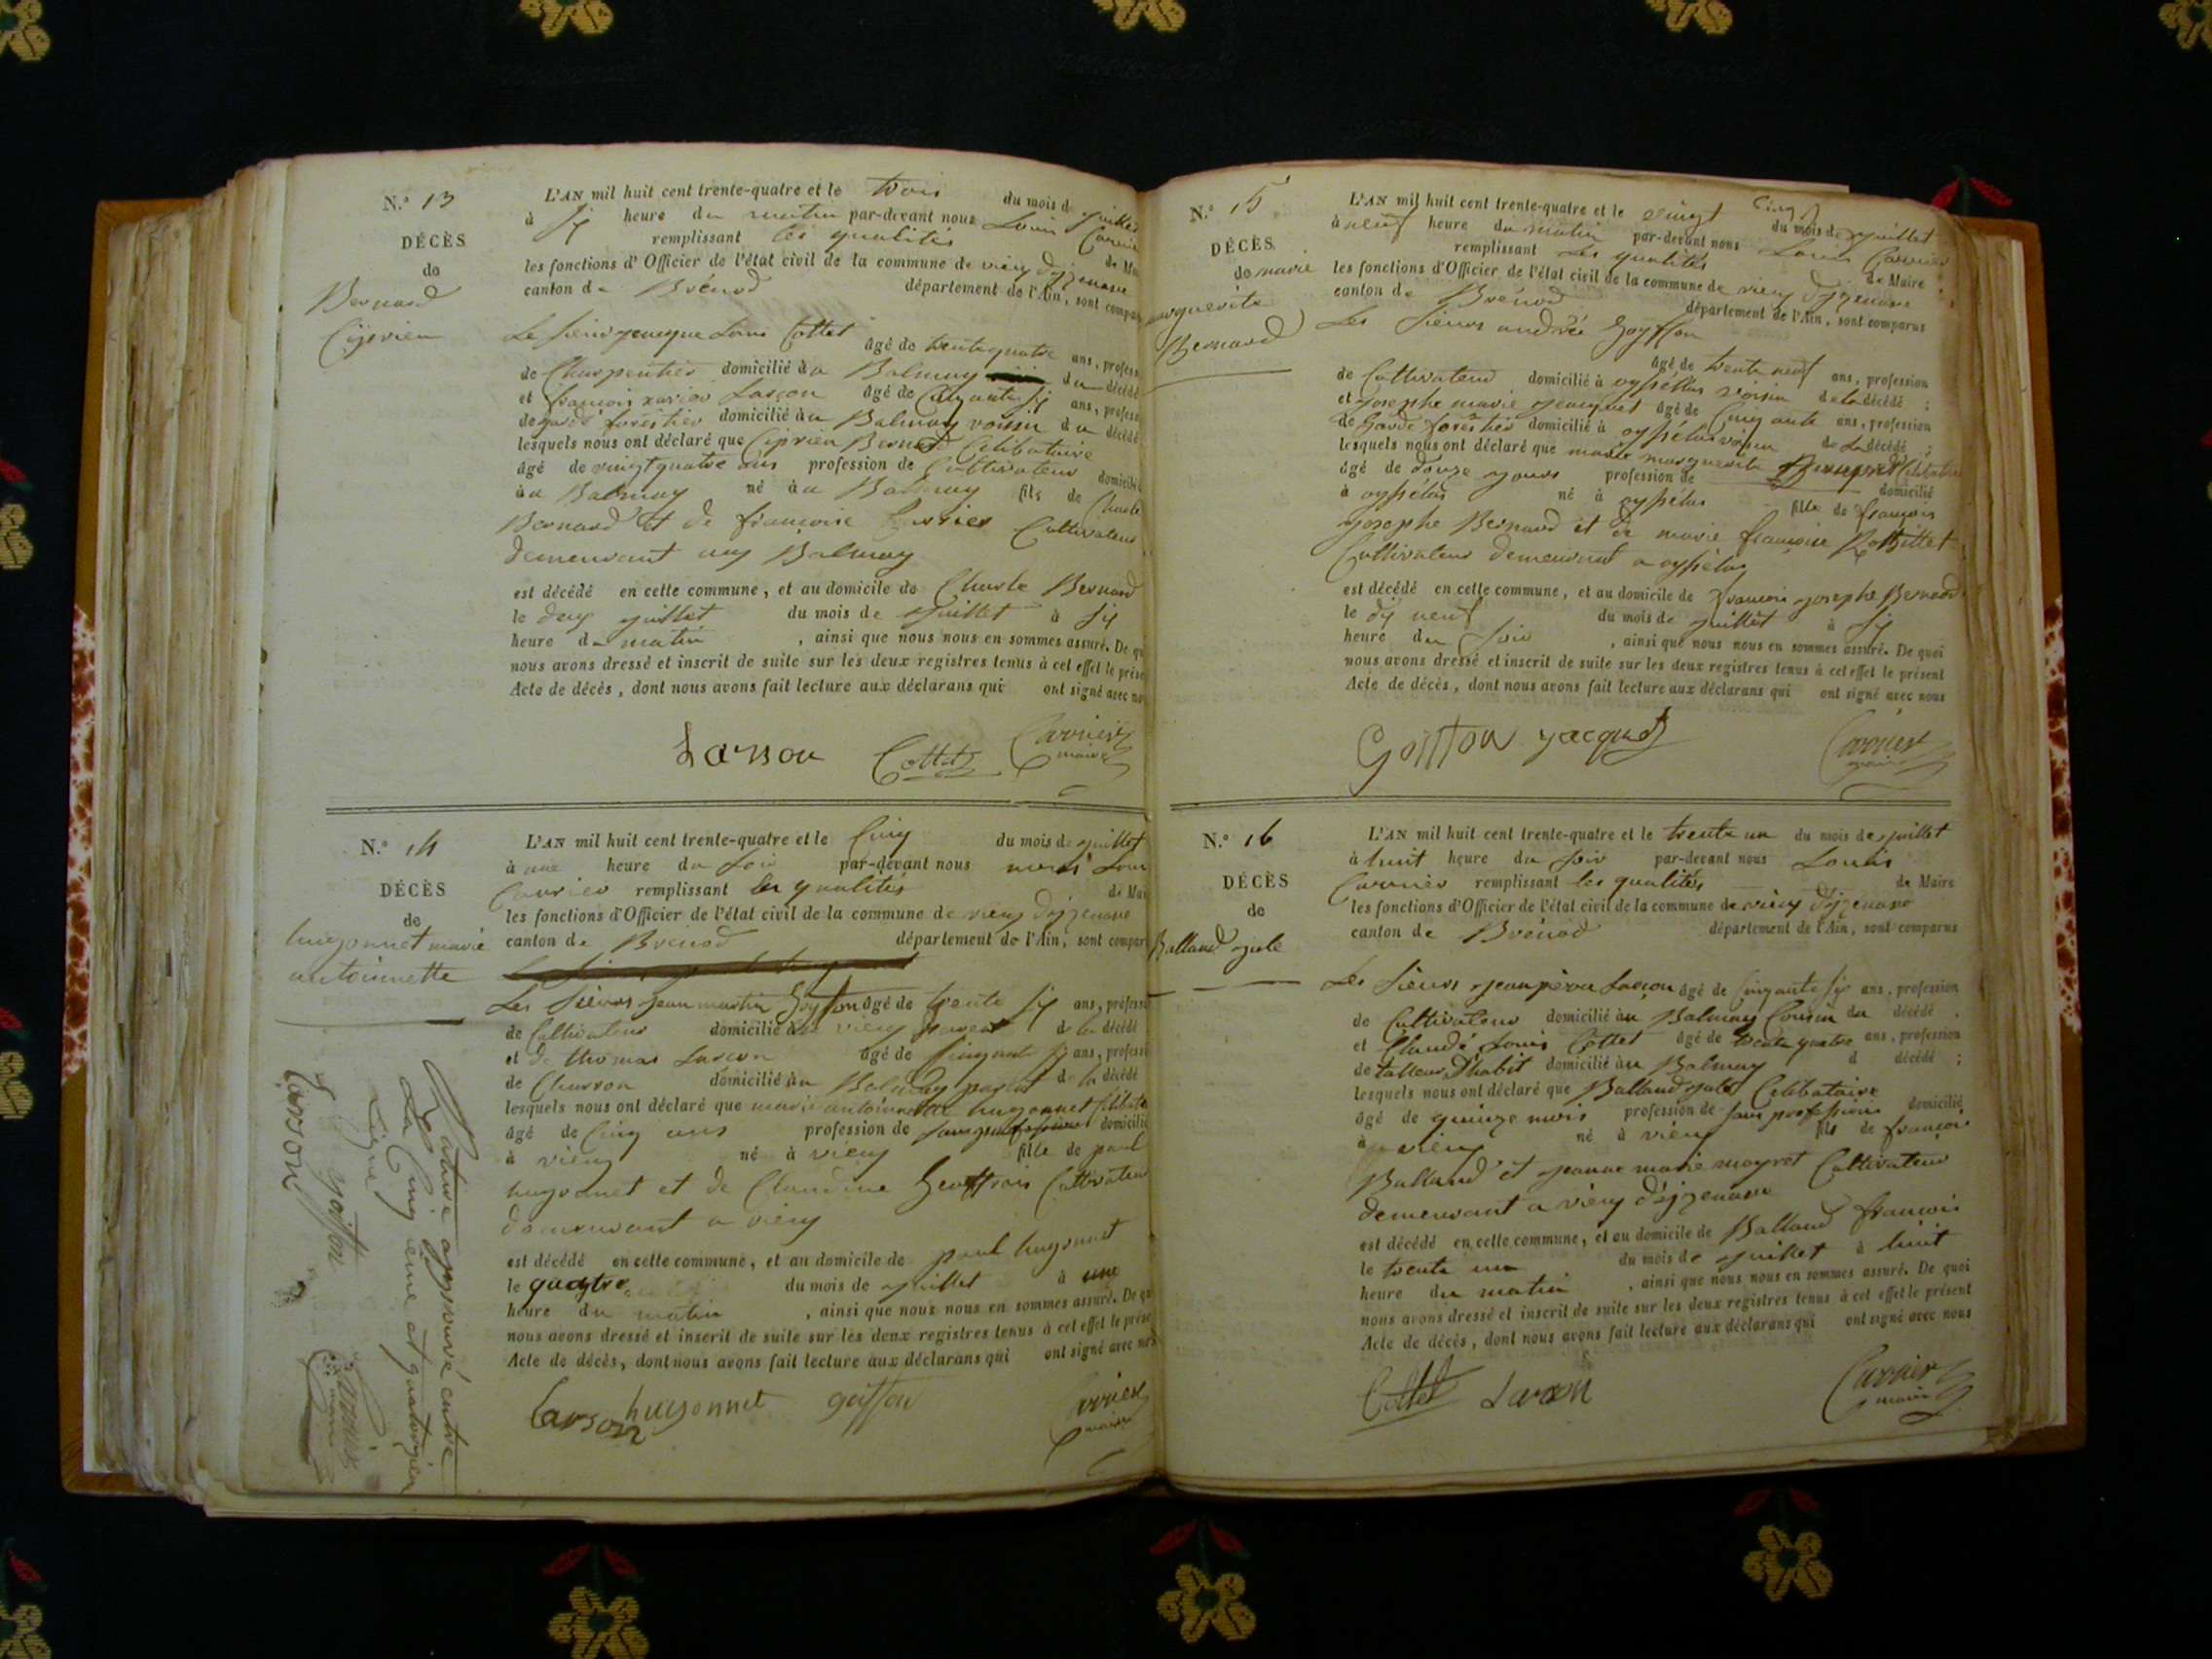 N.º 13
DÉCÈS
de
Bernard
Ciprien
L'AN mil huit cent trente-quatre et le trois du mois de juillet
à six heure du matin par-devant nous Louis Carrier
remplissant les qualités de Mai
les fonctions d'Officier de l'état civil de la commune de vieux d'izenave
canton de Brénod département de l'Ain, sont compar
Le sieur jacque Louis Cottet âgé de trente quatre ans, profess
de Charpentier domicilié au Balmay du décédé
et francois xavier Larçon âgé de Cinquante six ans, profess
de garde forestier domicilié au Balmay voisin du décédé
lesquels nous ont déclaré que Ciprien Bernard Celibataire
âgé de vingt quatre ans profession de Cultivateur domicilié
au Balmay né au Balmay fils de Charle
Bernard et de françoise Carrier Cultivateur
demeurant au Balmay
est décédé en cette commune, et au domicile de Charle Bernard
le deux juillet du mois de juillet à six
heure du matin , ainsi que nous nous en sommes assuré. De qu
nous avons dressé et inscrit de suite sur les deux registres tenus à cet effet le prése
Acte de décès, dont nous avons fait lecture aux déclarans qui ont signé avec no
Larson Cottet Carrier
maire
N.º 14
DÉCÈS
de
hugonnet marie
antoinette
L'AN mil huit cent trente-quatre et le Cinq du mois de juillet
à une heure du soir par-devant nous Louis
Carrier remplissant les qualités de Mai
les fonctions d'Officier de l'état civil de la commune de vieux d'izenave
canton de Brénod département de l'Ain, sont compar
Les sieurs jean martin Goyffon âgé de trente six ans, professi
de Cultivateur domicilié a vieux parent de la décédé
et de thomas Larçon âgé de Cinquante six ans, professi
de Charron domicilié au Balmay de la décédé
lesquels nous ont déclaré que marie antoinette hugonnet Celibataire
âgé de Cinq ans profession de sans profession domicilié
à vieux né à vieux fille de paul
hugonnet et de Claudine Geoffrois Cultivateur
demeurant a vieux
est décédé en cette commune, et au domicile de paul hugonnet
le quaytre du mois de juillet à une
heure du matin , ainsi que nous nous en sommes assuré. De qu
nous avons dressé et inscrit de suite sur les deux registres tenus à cet effet le prése
Acte de décès, dont nous avons fait lecture aux déclarans qui ont signé avec no
Larson hugonnet goiffon Carrier
maire
Rature approuvé entre
La Cinq ième et quatorzien
Ligne
goiffon Carrier
maire
Larson
N.º 15
DÉCÈS
de marie
marguerite
Bernard
L'AN mil huit cent trente-quatre et le vingt Cinq du mois de juillet
à neuf heure du matin par-devant nous Louis Carrier
remplissant les qualités de Maire
les fonctions d'Officier de l'état civil de la commune de vieux d'izenave
canton de Brénod département de l'Ain, sont comparus
Les sieurs andrée Goyffon âgé de trente neuf ans, profession
de Cultivateur domicilié à oysselas voisin de la décédé ;
et josephe marie jacquet âgé de Cinq ante ans, profession
de Garde forestier domicilié à oysselas voisin de la décédé ;
lesquels nous ont déclaré que marie marguerite Bernard Celibataire
âgé de douze jours profession de domicilié
à oysselas né à oysselas fille de françois
josephe Bernard et de marie françoise
Cultivateur demeurant a oysselas
est décédé en cette commune, et au domicile de francois josephe Bernard
le dix neuf du mois de juillet à six
heure du soir , ainsi que nous nous en sommes assuré. De quoi
nous avons dressé et inscrit de suite sur les deux registres tenus à cet effet le présent
Acte de décès, dont nous avons fait lecture aux déclarans qui ont signé avec nous
Goiffon jacquet Carrier
maire
N.º 16
DÉCÈS
de
Balland jule
L'AN mil huit cent trente-quatre et le trente un du mois de juillet
à huit heure du soir par-devant nous Louis
Carrier remplissant les qualités de Maire
les fonctions d'Officier de l'état civil de la commune de vieux d'izenave
canton de Brénod département de l'Ain, sont comparus
Les sieurs jean Larçon âgé de Cinquante six ans, profession
de Cultivateur domicilié au Balmay Cousin du décédé
et Claude Louis Cottet âgé de trente quatre ans, profession
de talleur D'habit domicilié au Balmay d décédé ;
lesquels nous ont déclaré que Balland jules Celibataire
âgé de quinze mois profession de sans profession domicilié
à vieux né à vieux fils de francois
Balland et jeanne marie mayret Cultivateur
demeurant a vieux d'izenave
est décédé en cette commune, et au domicile de Balland francois
le trente un du mois de juillet à huit
heure du matin , ainsi que nous nous en sommes assuré. De quoi
nous avons dressé et inscrit de suite sur les deux registres tenus à cet effet le présent
Acte de décès, dont nous avons fait lecture aux déclarans qui ont signé avec nous
Cottet Larçon Carrier
maire